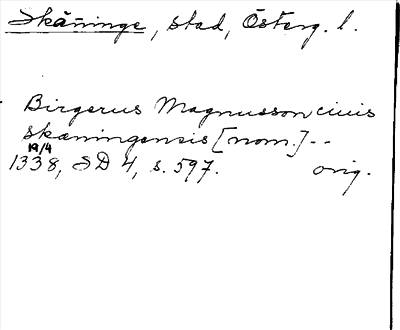 Skäninge, stad, Österg. l.
Birgerus Magnusson ciuis
skæningensis [nom.] --
19/4
1338, SD 4, s. 597. orig.